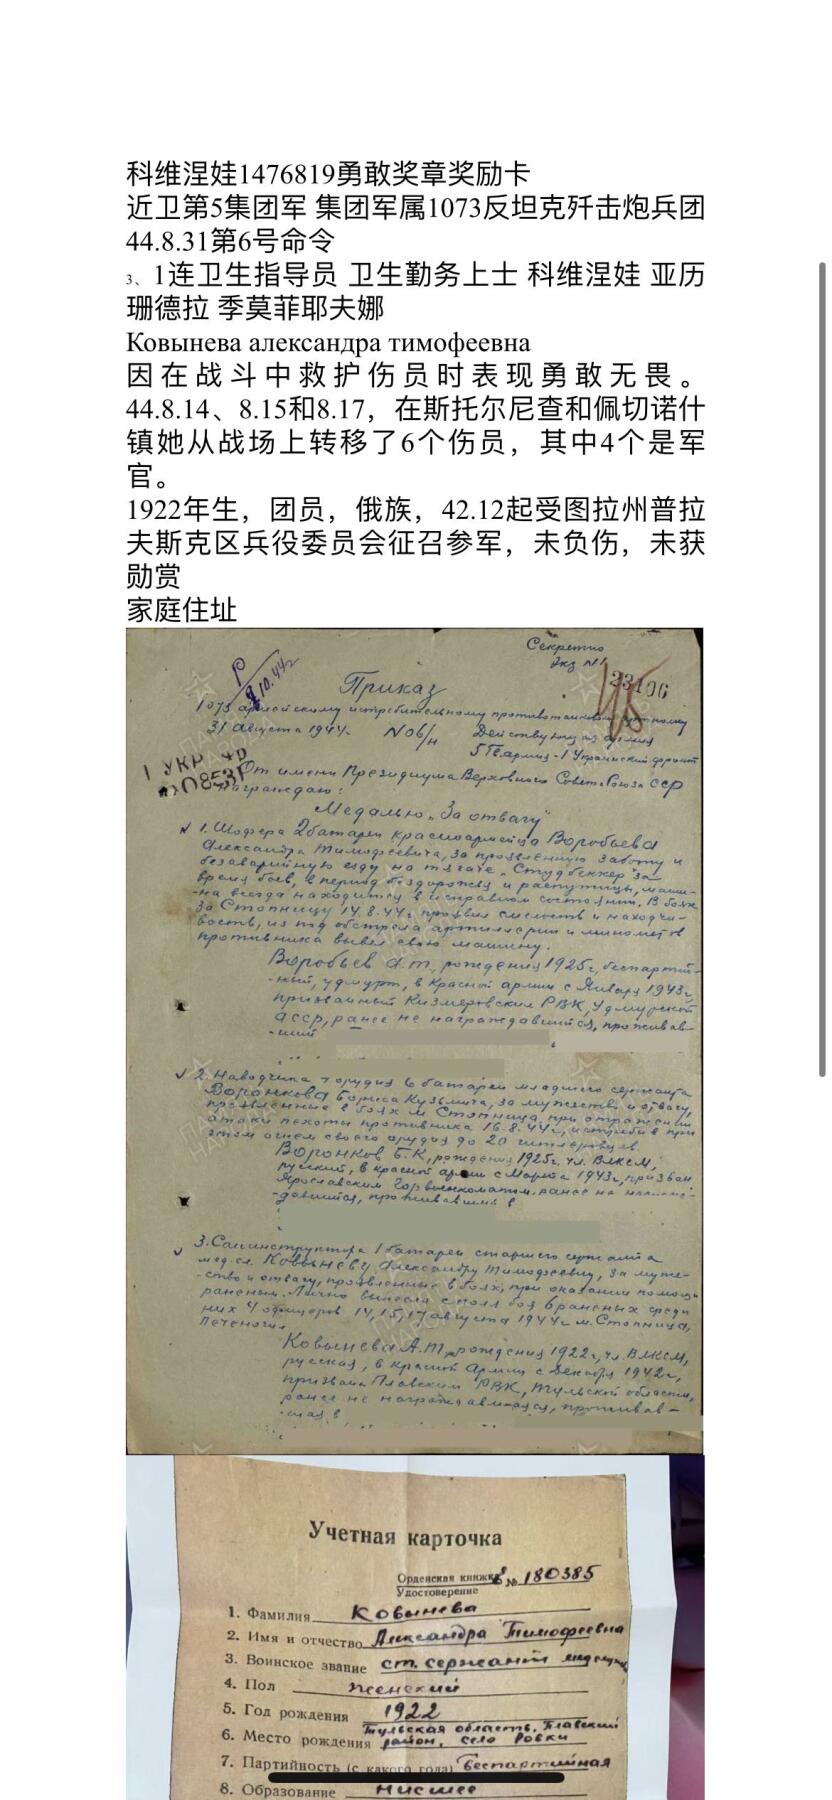 科维涅娃1476819勇敢奖章奖励卡
近卫第5集团军 集团军属1073反坦克歼击炮兵团
44.8.31第6号命令
3、1连卫生指导员 卫生勤务上士 科维涅娃 亚历
珊德拉 季莫菲耶夫娜
Ковынева александра тимофеевна
因在战斗中救护伤员时表现勇敢无畏。
44.8.14、8.15和8.17，在斯托尔尼查和佩切诺什
镇她从战场上转移了6个伤员，其中4个是军
官。
1922年生，团员，俄族，42.12起受图拉州普拉
夫斯克区兵役委员会征召参军，未负伤，未获
勋赏
家庭住址
Секретно
экз №1
23106
10.44г
Приказ
1073 армейскому истребительному противотанковому
31 августа 1944г. N 06/н Действующая армия
5 Гв армия - 1 Украинский фронт
1 УКР
От имени Президиума Верховного Совета Союза ССР
награждаю:
Медалью „За отвагу"
1. Шофера 2 батареи красноармейца Воробьева
Александра Тимофеевича, за проявленную заботу и
безаварийную езду на тягаче „Студебеккер" за
время боев, в период бездорожья и распутицы, маши-
-на всегда находится в исправном состоянии. В боях
за Стопницу 14.8.44г. проявил смелость и находчи-
вость, из под обстрела артиллерии и минометов
противника вывел свою машину.
Воробьев А.Т., рождения 1925г., беспартий-
-ный, удмурт, в Красной армии с Января 1943г,
призванный РВК, Удмурской
АССР, ранее не награждавшийся, проживав-
-ший
2. Наводчика орудия 6 батареи младшего сержанта
Воронкова Бориса Кузьмича, за мужество и отвагу,
проявленные в боях м. Стопница, при отражении
атаки пехоты противника 16.8.44г., истребив при
этом огнем своего орудия до 20 гитлеровцев.
Воронков Б.К, рождения 1925г. чл. ВЛКСМ,
русский, в красной армии с Марта 1943г, призван
Ярославским Горвоенкоматом, ранее не награж-
-давшийся, проживавший в
3. Санинструктора 1 батареи старшего сержанта
мед.сл. Ковыневу Александру Тимофеевну, за муже-
-ство и отвагу, проявленные в боях, при оказании помощи
раненым. Лично вынесла с поля боя 6 раненых среди
них 4 офицеров 14, 15, 17 августа 1944г м. Стопница,
Ковынева А.Т., рождения 1922г, чл. ВЛКСМ,
русская, в Красной Армии с Декабря 1942г,
призвана Плавским РВК, Тульской области,
ранее не награждавшаяся, проживав-
-шая в
Учетная карточка
Орденская книжка
Удостоверение
№ 180385
1. Фамилия Ковынева
2. Имя и отчество Александра Тимофеевна
3. Воинское звание ст. сержант медслужбы
4. Пол женский
5. Год рождения 1922
6. Место рождения Тульская область, Плавский
район, село Ровки
7. Партийность (с какого года) беспартийная
8. Образование низшее